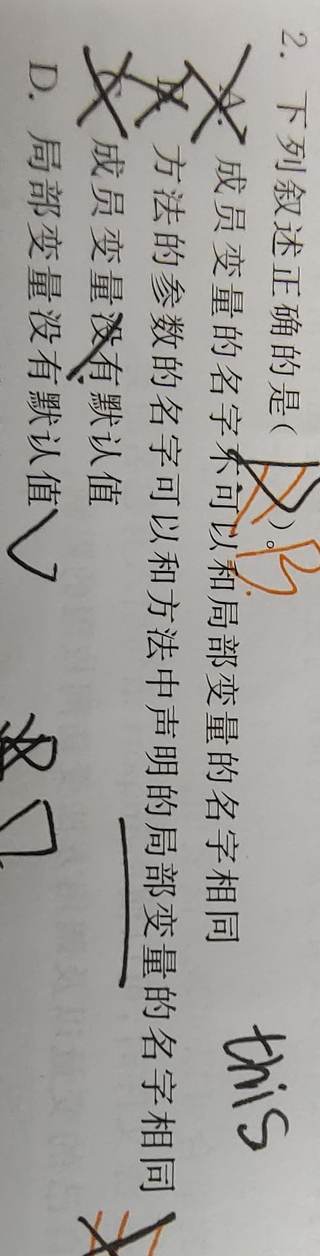 2. 下列叙述正确的是( )。B.
A. 成员变量的名字不可以和局部变量的名字相同
this
B. 方法的参数的名字可以和方法中声明的局部变量的名字相同
C. 成员变量没有默认值
D. 局部变量没有默认值